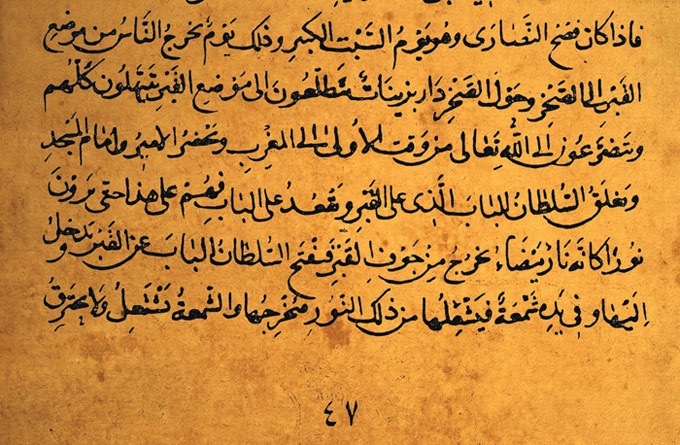 فاذا كان فصح النصارى وهو يوم السبت الكبير وذلك يوم يخرج الناس من موضع
القبر الى الصخر وحول الصخر داربزينات يتطلعون الى موضع القبر يتبهلون كلهم
ويتضرعون الى الله تعالى من وقت الأولى الى المغرب ويحضر الامير وامام المسجد
ويغلق السلطان الباب الذي على القبر ويقعد على الباب فهم على هذا حتى يرون
نورا كانه نار بيضاء يخرج من جوف القبر فيفتح السلطان الباب عن القبر ويدخل
اليها وفي يده شمعة فيشعلها من ذلك النور فيخرجها والشمعة تشتعل ولا يحترق
٤٧